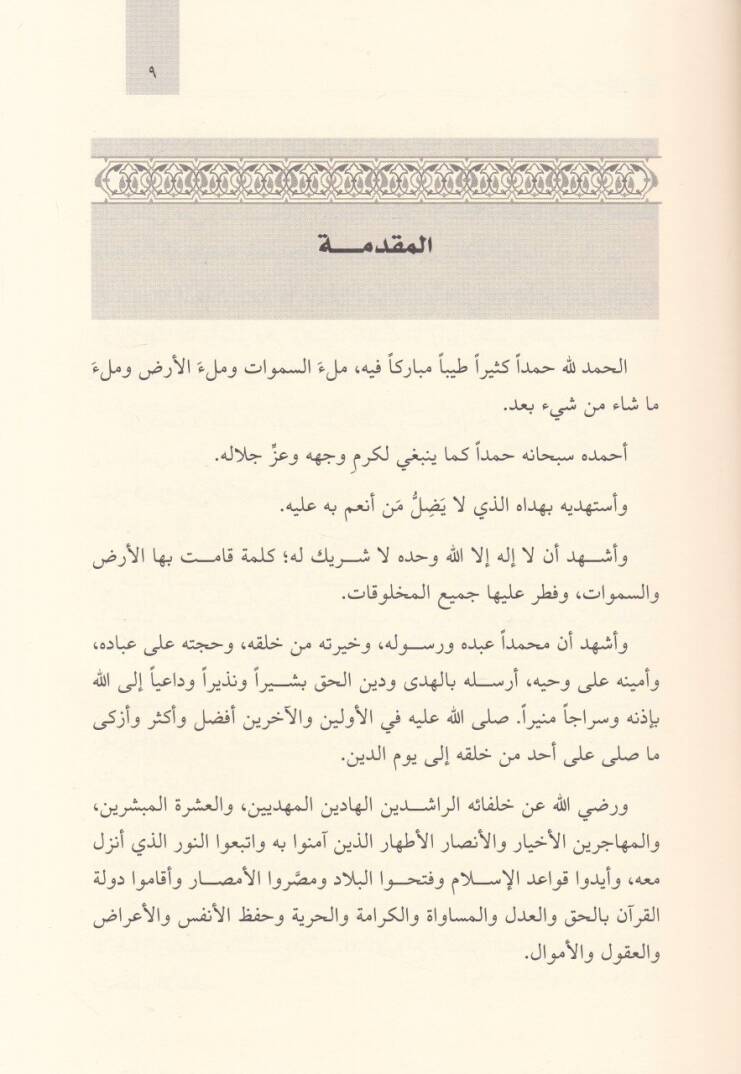 ٩
المقدمة
الحمد لله حمداً كثيراً طيباً مباركاً فيه، ملءَ السموات وملءَ الأرض وملءَ
ما شاء من شيء بعد.
أحمده سبحانه حمداً كما ينبغي لكرمِ وجهه وعزِّ جلاله.
وأستهديه بهداه الذي لا يَضِلُّ مَن أنعم به عليه.
وأشهد أن لا إله إلا الله وحده لا شريك له؛ كلمة قامت بها الأرض
والسموات، وفطر عليها جميع المخلوقات.
وأشهد أن محمداً عبده ورسوله، وخيرته من خلقه، وحجته على عباده،
وأمينه على وحيه، أرسله بالهدى ودين الحق بشيراً ونذيراً وداعياً إلى الله
بإذنه وسراجاً منيراً. صلى الله عليه في الأولين والآخرين أفضل وأكثر وأزكى
ما صلى على أحد من خلقه إلى يوم الدين.
ورضي الله عن خلفائه الراشدين الهادين المهديين، والعشرة المبشرين،
والمهاجرين الأخيار والأنصار الأطهار الذين آمنوا به واتبعوا النور الذي أنزل
معه، وأيدوا قواعد الإسلام وفتحوا البلاد ومصَّروا الأمصار وأقاموا دولة
القرآن بالحق والعدل والمساواة والكرامة والحرية وحفظ الأنفس والأعراض
والعقول والأموال.